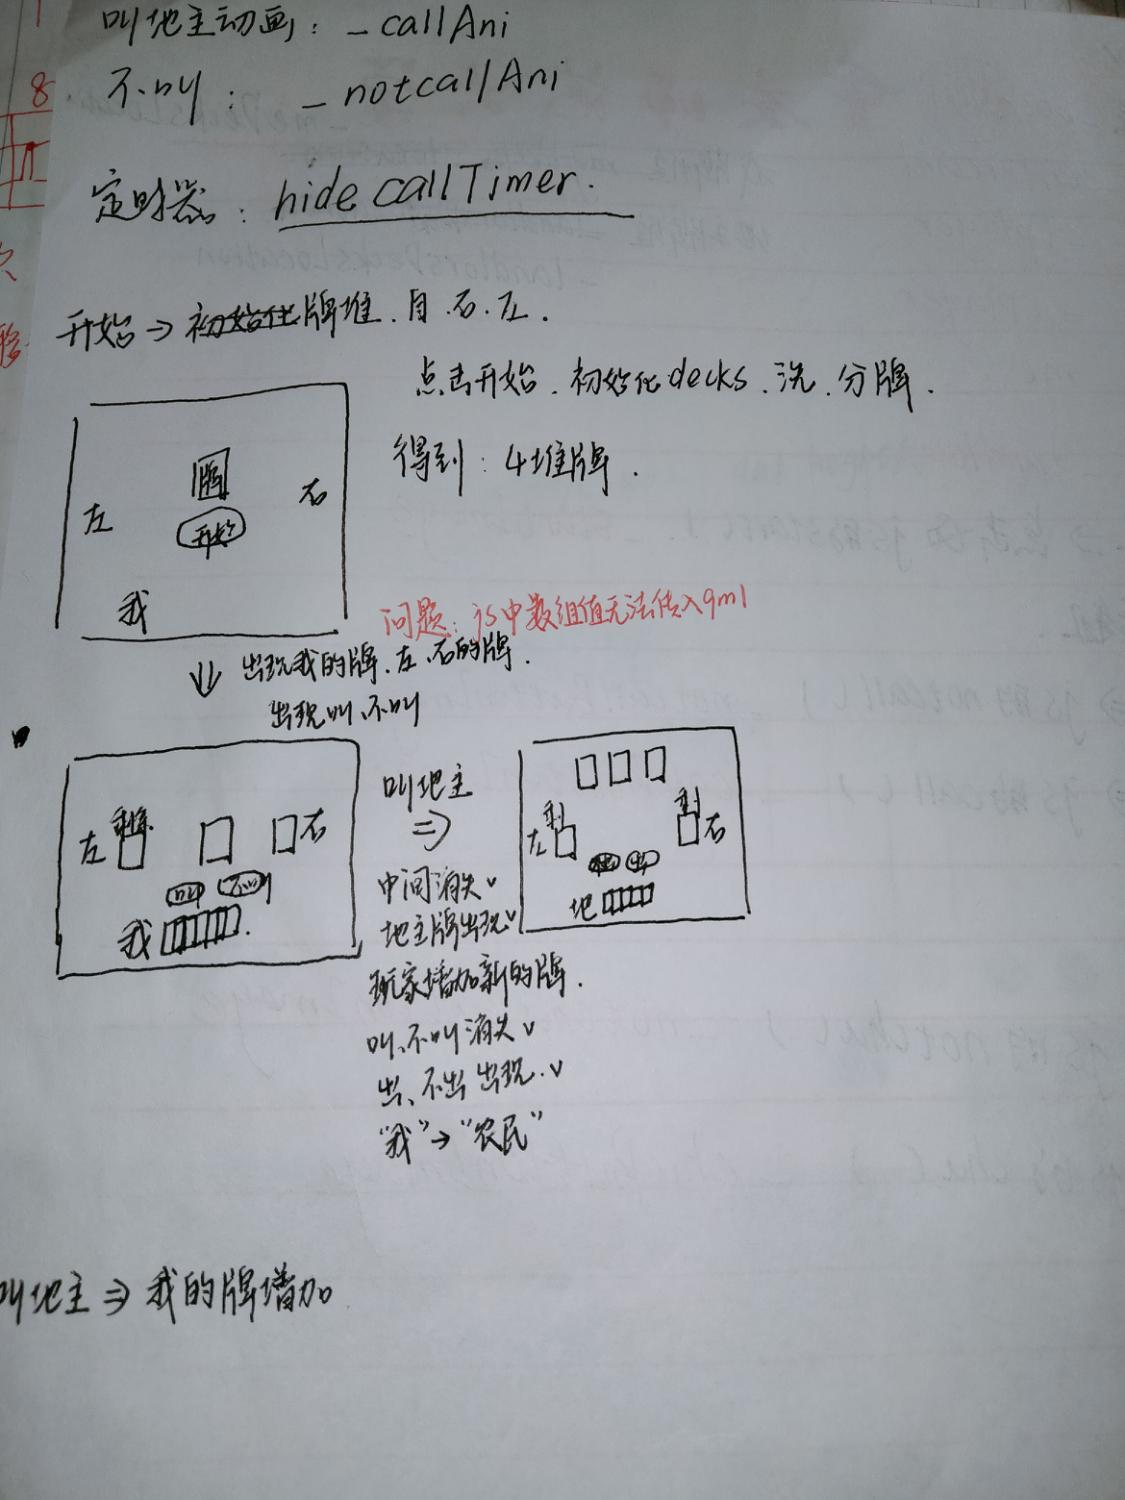 叫地主动画：_callAni
不叫：_notcallAni
定时器：hide callTimer.
开始⇒初始化牌堆.自.右.左.
点击开始.初始化decks.洗.分牌.
得到：4堆牌.
牌
左
右
开始
我
问题：js中数组值无法传入qml
⇓ 出现我的牌.左、右的牌.
出现叫、不叫
左
右
叫 不叫
我
叫地主
⇒
中间消失√
地主牌出现√
玩家增加新的牌.
叫、不叫消失√
出、不出出现.√
“我”→“农民”
左
右
地
叫地主⇒我的牌增加